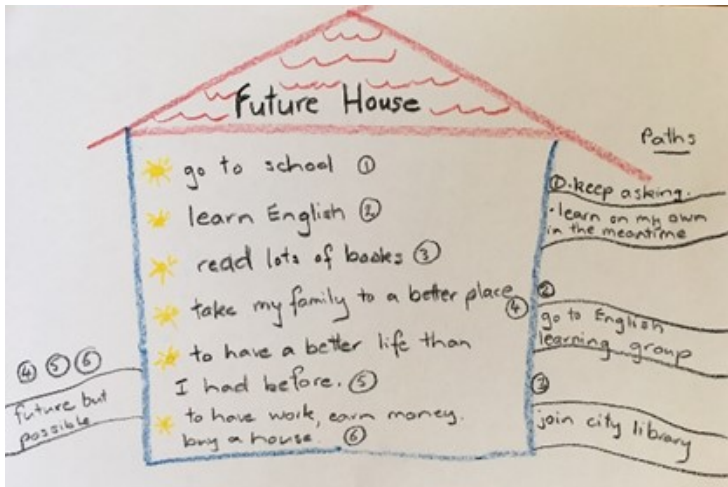 Future House
go to school ①
learn English ②
read lots of books ③
take my family to a better place ④
to have a better life than
I had before. ⑤
to have work, earn money.
buy a house. ⑥
Paths
① • keep asking.
• learn on my own
in the meantime
②
go to English
learning group
③
join city library
④ ⑤ ⑥
future but
possible